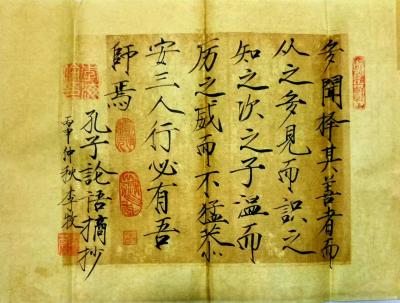 多聞择其善者而
从之多見而識之
知之次之子温而
厉之威而不猛恭
安三人行必有吾
師焉
孔子論语摘抄
丙申仲秋李牧